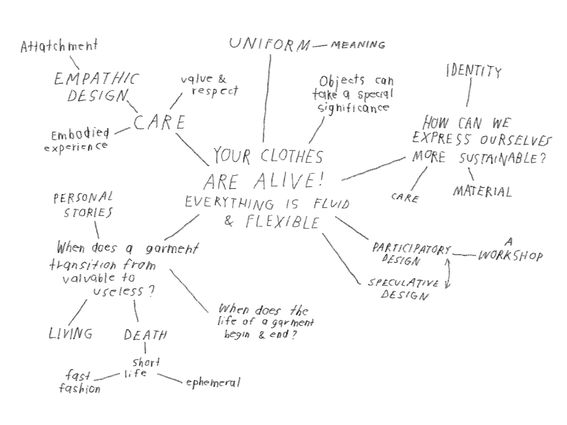 Attatchment
EMPATHIC
DESIGN
CARE
value &
respect
Embodied
experience
UNIFORM
MEANING
Objects can
take a special
significance
IDENTITY
HOW CAN WE
EXPRESS OURSELVES
MORE SUSTAINABLE?
CARE
MATERIAL
YOUR CLOTHES
ARE ALIVE!
EVERYTHING IS FLUID
& FLEXIBLE
PERSONAL
STORIES
When does a garment
transition from
valuable to
useless?
LIVING
DEATH
short
life
fast
fashion
ephemeral
When does the
life of a garment
begin & end?
PARTICIPATORY
DESIGN
A
WORKSHOP
SPECULATIVE
DESIGN